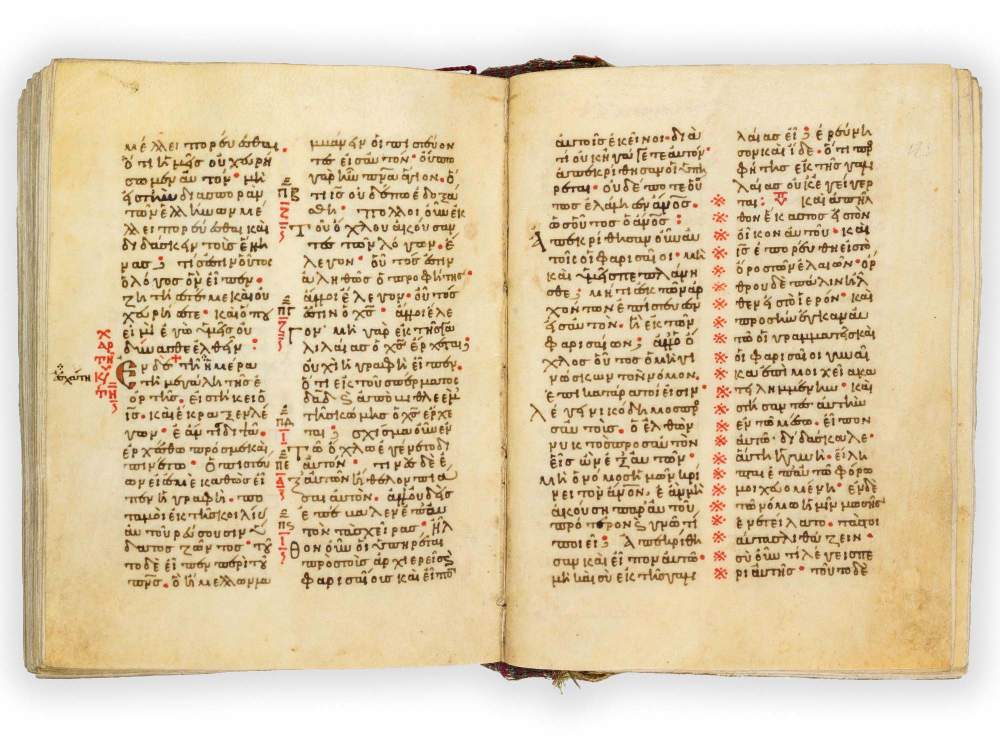 μέλλει πορεύεσθαι
ὅτι ἡμεῖς οὐχ εὑρή
σωμεν αὐτόν • μὴ
εἰς τὴν διασπορὰν
τῶν ἑλλήνων μέ
λλει πορεύεσθαι καὶ
διδάσκειν τοὺς ἕλλη
νας ; τίς ἐστιν οὗτος
ὁ λόγος ὃν εἶπεν •
ζητήσετέ με καὶ οὐχ
εὑρήσετε • καὶ ὅπου
εἰμὶ ἐγὼ ὑμεῖς οὐ
δύνασθε ἐλθεῖν •
Ἐν δὲ τῇ ἡμέρα
ἐσχάτη
τῇ μεγάλη τῆς ἑ
ορτῆς • εἱστήκει ὁ
ις • καὶ ἔκραξεν λέ
γων • ἐάν τις διψᾶ •
ἐρχέσθω πρός με καὶ
πινέτω • ὁ πιστεύ
ων εἰς ἐμὲ καθὼς εἶ
πεν ἡ γραφή • πο
ταμοὶ ἐκ τῆς κοιλίας
αὐτοῦ ῥεύσουσιν ὕ
δατος ζῶντος • τοῦ
το δὲ εἶπεν περὶ τοῦ
πνς • οὗ ἤμελλον λα
μβάνειν οἱ πιστεύον
τες εἰς αὐτόν • οὔπω
γὰρ ἦν πνα ἅγιον • ὅ
τι ις οὐδέπω ἐδοξά
σθη • πολλοὶ οὖν ἐκ
τοῦ ὄχλου ἀκούσαν
τες τὸν λόγον • ἔ
λεγον • οὗτός ἐστιν
ἀληθῶς ὁ προφήτης •
ἄλλοι ἔλεγον • οὗτός
ἐστιν ὁ χς • ἄλλοι ἔλε
γον • μὴ γὰρ ἐκ τῆς γα
λιλαίας ὁ χς ἔρχεται ;
οὐχὶ ἡ γραφὴ εἶπεν
ὅτι ἐκ τοῦ σπέρματος
δαδ καὶ ἀπὸ βηθλεὲμ
τῆς κώμης ὁ χς ἔρχε
ται ; σχίσμα οὖν ἐν
τῷ ὄχλω ἐγένετο δι
αὐτόν • τινὲς δὲ ἐ
ξ αὐτῶν ἤθελον πιά
σαι αὐτόν • ἀλλ οὐδεὶς
ἐπέβαλεν ἐπ αὐ
τὸν τὰς χεῖρας • ἦλ
θον οὖν οἱ ὑπηρέται
πρὸς τοὺς ἀρχιερεῖς καὶ
φαρισαίους καὶ εἶπον
αὐτοῖς ἐκεῖνοι • διὰ
τί οὐκ ἠγάγετε αὐτόν •
ἀπεκρίθησαν οἱ ὑπη
ρέται • οὐδέποτε οὕ
τως ἐλάλησεν ἄνος •
ὡς οὗτος ὁ ἄνος •
Ἀπεκρίθησαν οὖν αὐ
τοῖς οἱ φαρισαῖοι • μὴ
καὶ ὑμεῖς πεπλάνη
σθε ; μή τις ἐκ τῶν ἀρ
χόντων ἐπίστευσεν
εἰς αὐτόν • ἢ ἐκ τῶν
φαρισαίων ; ἀλλ ὁ
ὄχλος οὗτος ὁ μὴ γι
νώσκων τὸν νόμον •
ἐπικατάρατοί εἰσιν •
λέγει νικόδημος πρ
ὸς αὐτούς • ὁ ἐλθὼν
νυκτὸς πρὸς αὐτὸν
εἷς ὢν ἐξ αὐτῶν •
μὴ ὁ νόμος ἡμῶν κρί
νει τὸν ἄνον • ἐὰν μὴ
ἀκούση παρ αὐτοῦ
πρότερον καὶ γνῶ τί
ποιεῖ ; Ἀπεκρίθη
σαν καὶ εἶπον αὐτῶ •
μὴ καὶ σὺ ἐκ τῆς γαλι
λαίας εἶ ; ἐρεύνη
σον καὶ ἴδε • ὅτι προ
φήτης ἐκ τῆς γαλι
λαίας οὐκ ἐγείγερ
ται • καὶ ἀπῆλ
θον ἕκαστος εἰς τὸν
οἶκον αὐτοῦ • καὶ
ις ἐπορεύθη εἰς τὸ
ὄρος τῶν ἐλαιῶν • ὄρ
θρου δὲ πάλιν ἦλ
θεν εἰς τὸ ἱερόν • καὶ
προσήνεγκαν αὐ
τῶ οἱ γραμματεῖς καὶ
οἱ φαρισαῖοι γυναῖ
κα ἐπὶ μοιχεία κα
τειλημμένην • καὶ
στήσαντες αὐτὴν
ἐν τῷ μέσω • εἶπον
αὐτῶ • διδάσκαλε •
αὕτη ἡ γυνὴ • εἴλη
πται ἐπ αὐτοφόρω
μοιχωμένη • ἐν δὲ
τῷ νόμω ἡμῖν μωσῆς
ἐνετείλατο • τὰς τοι
αύτας λιθάζειν •
σὺ οὖν τί λέγεις πε
ρὶ αὐτῆς • τοῦτο δὲ